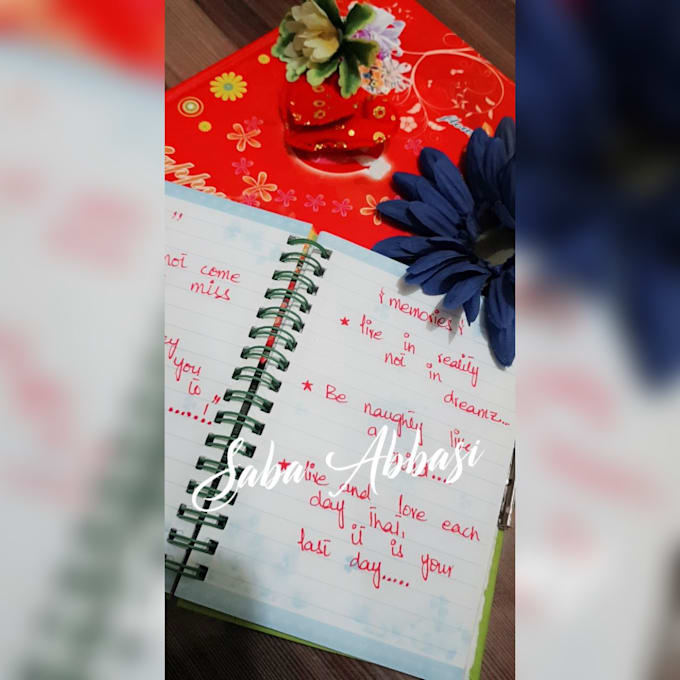 "
not come
miss
you
to
......!"
{memories}
★ live in reality
not in
dreamz...
★ Be naughty
live
★ live and love each
day that,
it is your
last day.....
Saba Abbasi